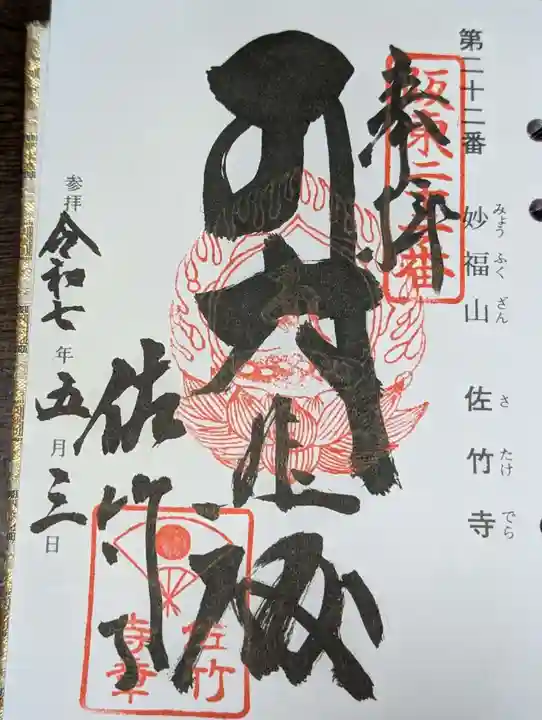 第二十二番 妙福山 佐竹寺
みょう ふく ざん さ たけ でら
奉拝
坂東二十二番
大悲殿
佐竹寺
佐竹
寺章
参拝 令和七年五月三日